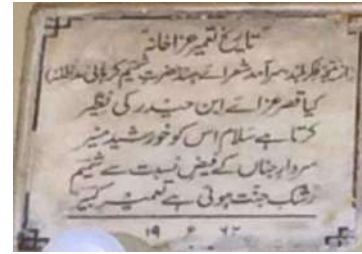 "تاریخ تعمیر عزاخانہ"
(از نتیجۂ فکر بلند سرآمد شعرائے ہند حضرت شمیم کرہانی مدظلہٗ)
کیا قصرِ عزائے ابن حیدر کی نظیر
کرتا ہے سلام اس کو خورشید منیر
سردارِ جناں کے فیضِ نسبت سے شمیم
رشک جنت ہوئی ہے تعمیر
۱۹ ۶ ۶۲